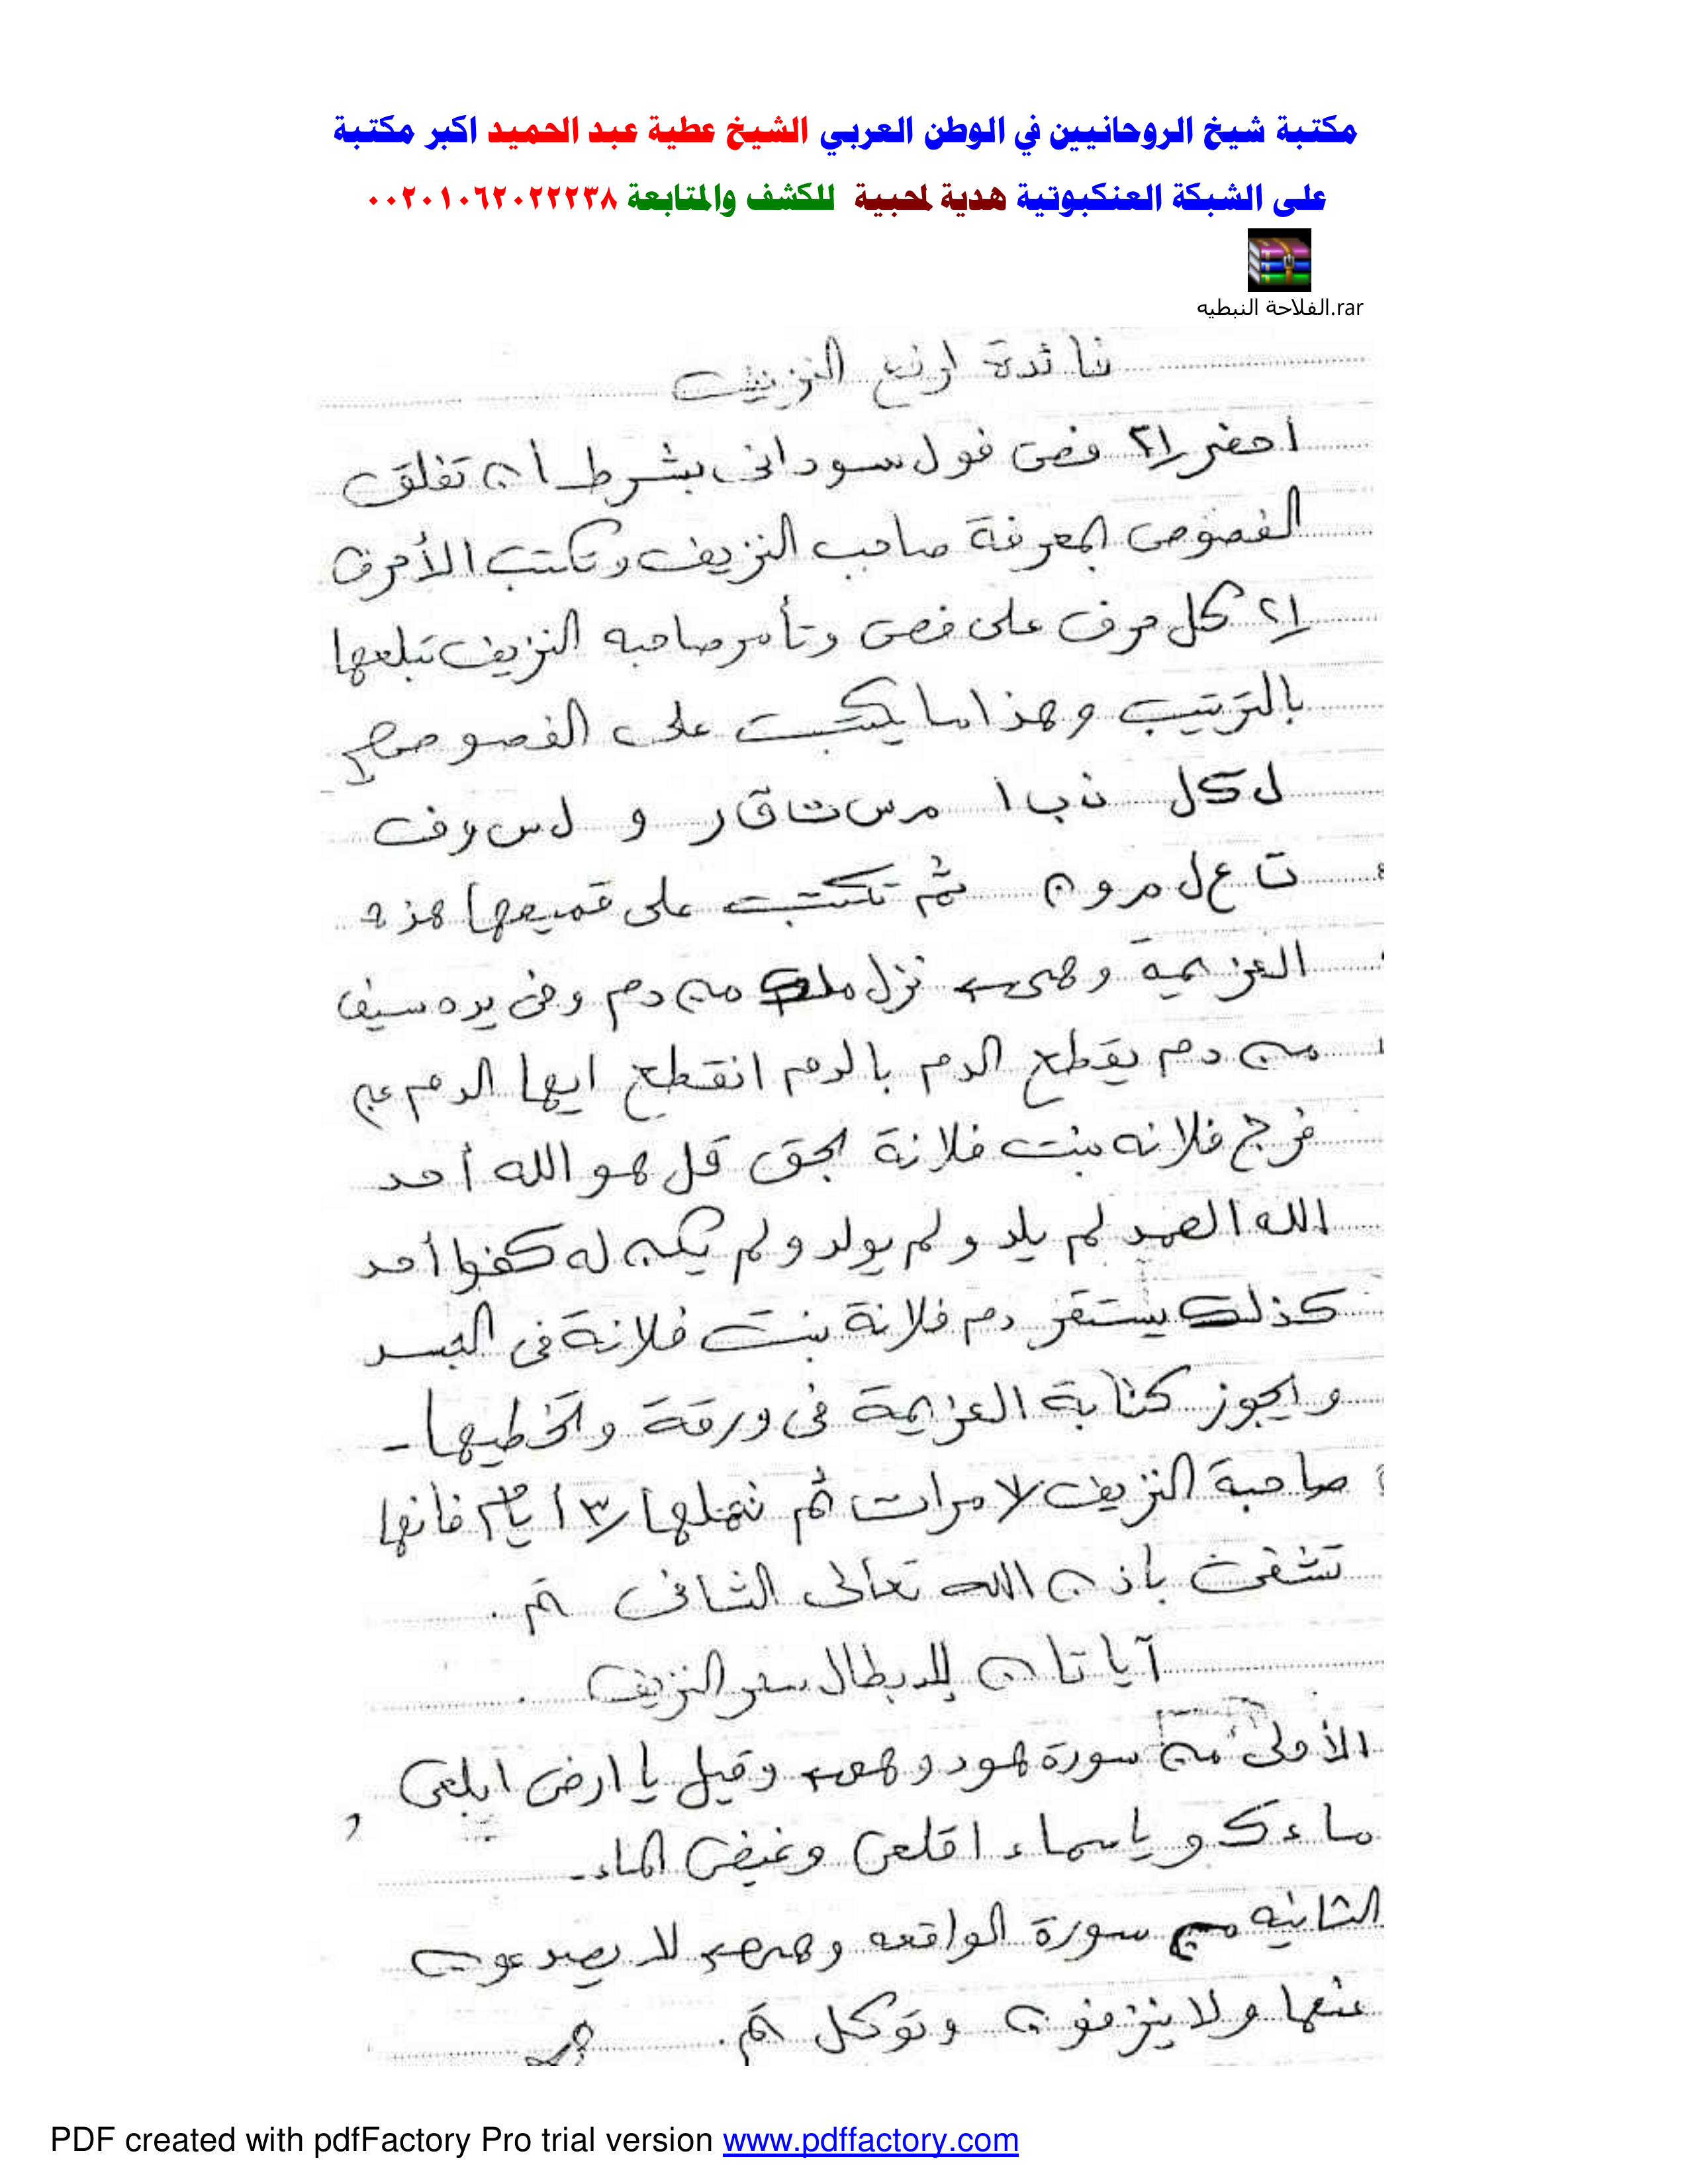 مكتبة شيخ الروحانيين في الوطن العربي الشيخ عطية عبد الحميد اكبر مكتبة
على الشبكة العنكبوتية هدية لمحبية للكشف والمتابعة ٠٠٢٠١٠٦٢٠٢٢٢٣٨
الفلاحة النبطيه.rar
فائدة لرفع النزيف
أحضر ٢١ فص فول سودانى بشرط أن تفلق
الفصوص لمعرفة صاحب النزيف وتكتب الأحرف
٢١ كل حرف على فص وتأمر صاحبه النزيف تبلعها
بالترتيب وهذا ما يكتب على الفصوص
ل ك ل ن ب ا م س ت ق ر و ل س و ف
ت ع ل م و ن ثم تكتب على قميصها هذه
العزيمة وهى نزل ملك من دم وفى يده سيف
من دم يقطع الدم بالدم انقطع ايها الدم عن
فرج فلانه بنت فلانة بحق قل هو الله أحد
الله الصمد لم يلد ولم يولد ولم يكن له كفوا أحد
كذلك يستقر دم فلانة بنت فلانة فى الجسد
ويجوز كتابة العزيمة فى ورقة وتخطيها -
صاحبة النزيف ٧ مرات ثم تحملها ٣ أيام فانها
تشفى باذن الله تعالى الشافى تم.
آياتان للابطال سحر النزيف
الأولى من سورة هود وهى وقيل يا ارض ابلعى
ماءك وياسماء اقلعى وغيض الماء -
الثانيه من سورة الواقعه وهى لا يصدعون
عنها ولا ينزفون وتوكل تم.
PDF created with pdfFactory Pro trial version www.pdffactory.com